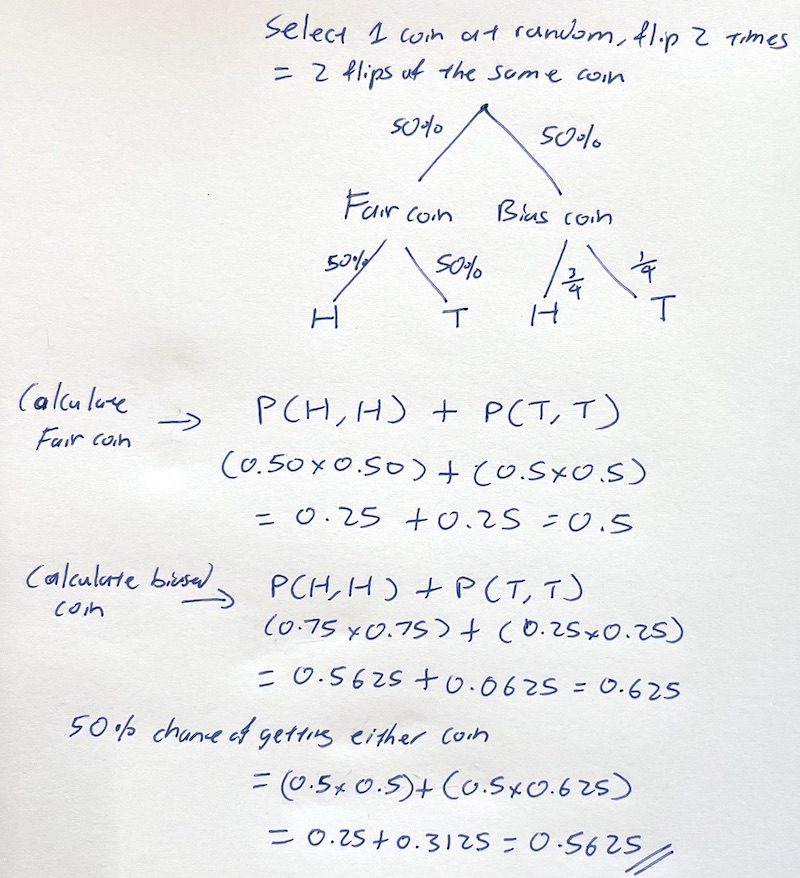 Select 1 coin at random, flip 2 times
= 2 flips of the same coin
50% 50%
Fair coin Bias coin
50% 50% 3/4 1/4
H T H T
Calculate Fair coin → P(H,H) + P(T,T)
(0.50 x 0.50) + (0.5 x 0.5)
= 0.25 + 0.25 = 0.5
Calculate biased coin → P(H,H) + P(T,T)
(0.75 x 0.75) + (0.25 x 0.25)
= 0.5625 + 0.0625 = 0.625
50% chance of getting either coin
= (0.5 x 0.5) + (0.5 x 0.625)
= 0.25 + 0.3125 = 0.5625